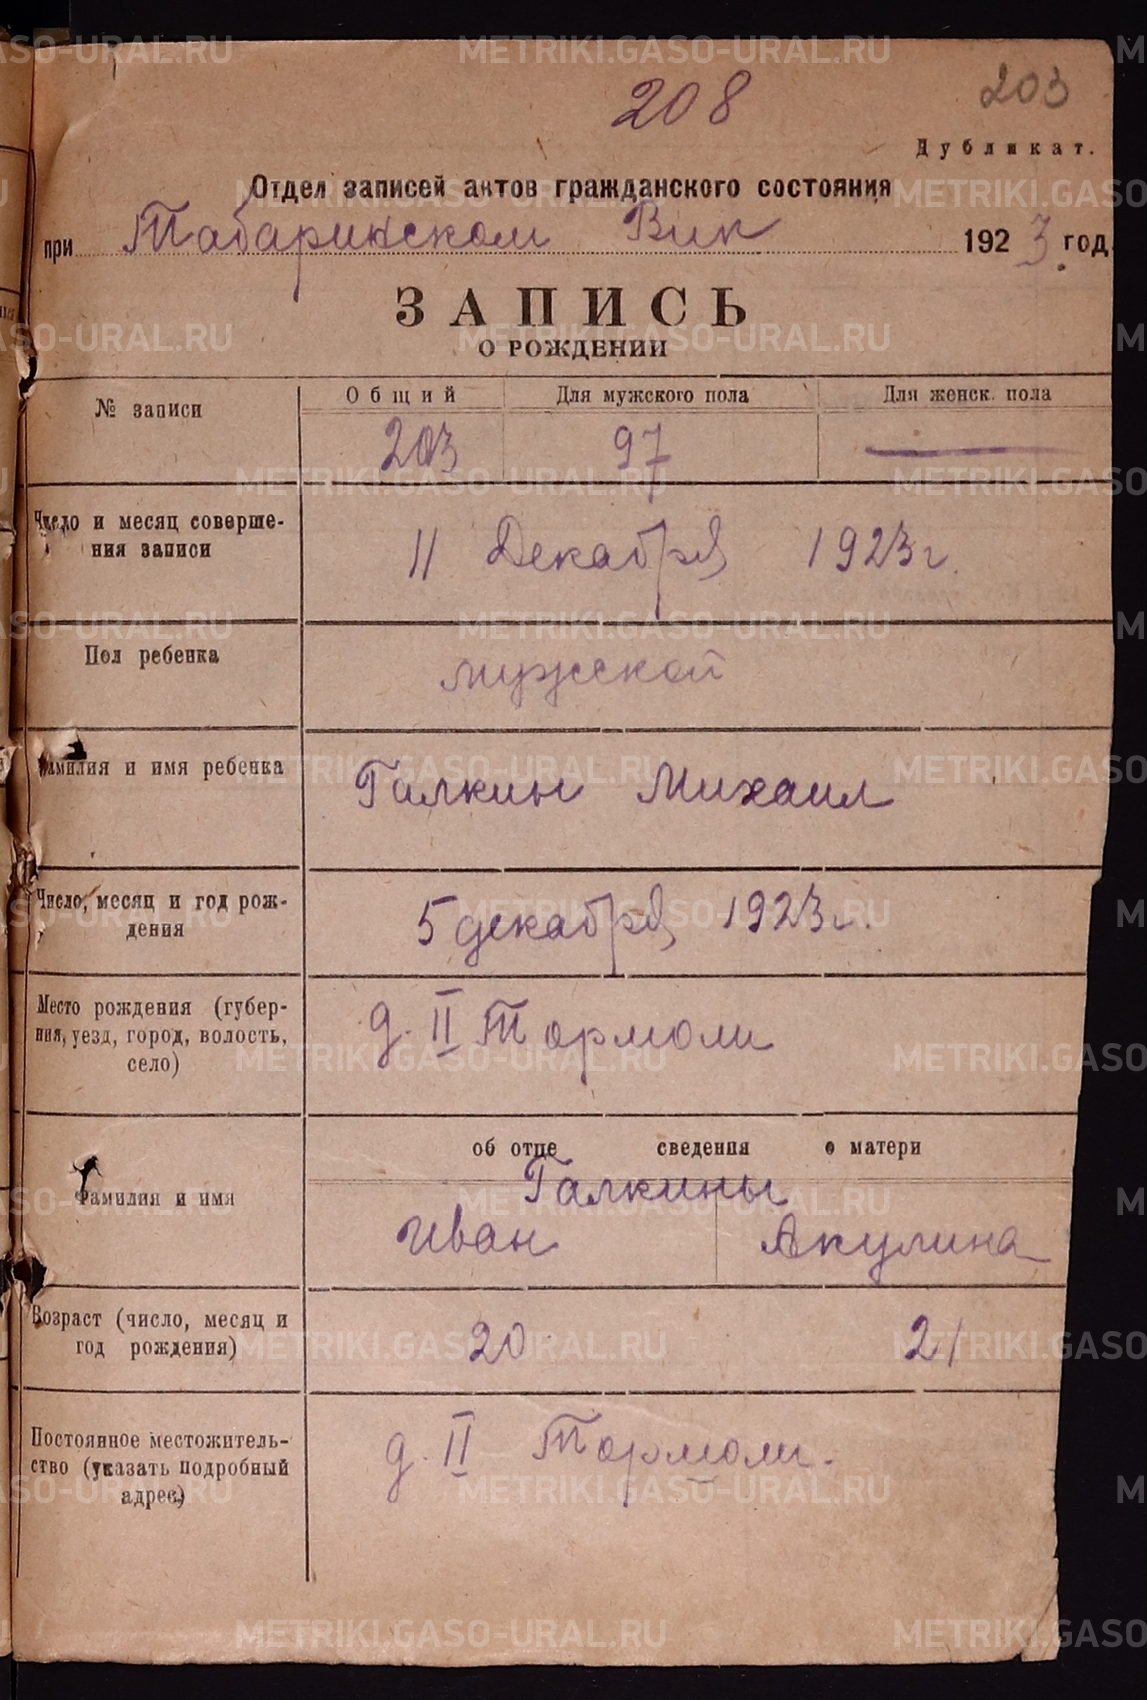 208
203
Дубликат.
Отдел записей актов гражданского состояния
при Табаринском Вик 1923 год.
ЗАПИСЬ
О РОЖДЕНИИ
№ записи
Общий Для мужского пола Для женск. пола
203 97 —
Число и месяц соверше-
ния записи
11 Декабря 1923 г.
Пол ребенка
мужской
Фамилия и имя ребенка
Галкин Михаил
Число, месяц и год рож-
дения
5 декабря 1923 г.
Место рождения (губер-
ния, уезд, город, волость,
село)
д. II Тормоли
об отце сведения о матери
Фамилия и имя
Галкины
Иван Акулина
Возраст (число, месяц и
год рождения)
20 21
Постоянное местожитель-
ство (указать подробный
адрес)
д. II Тормоли.
METRIKI.GASO-URAL.RU